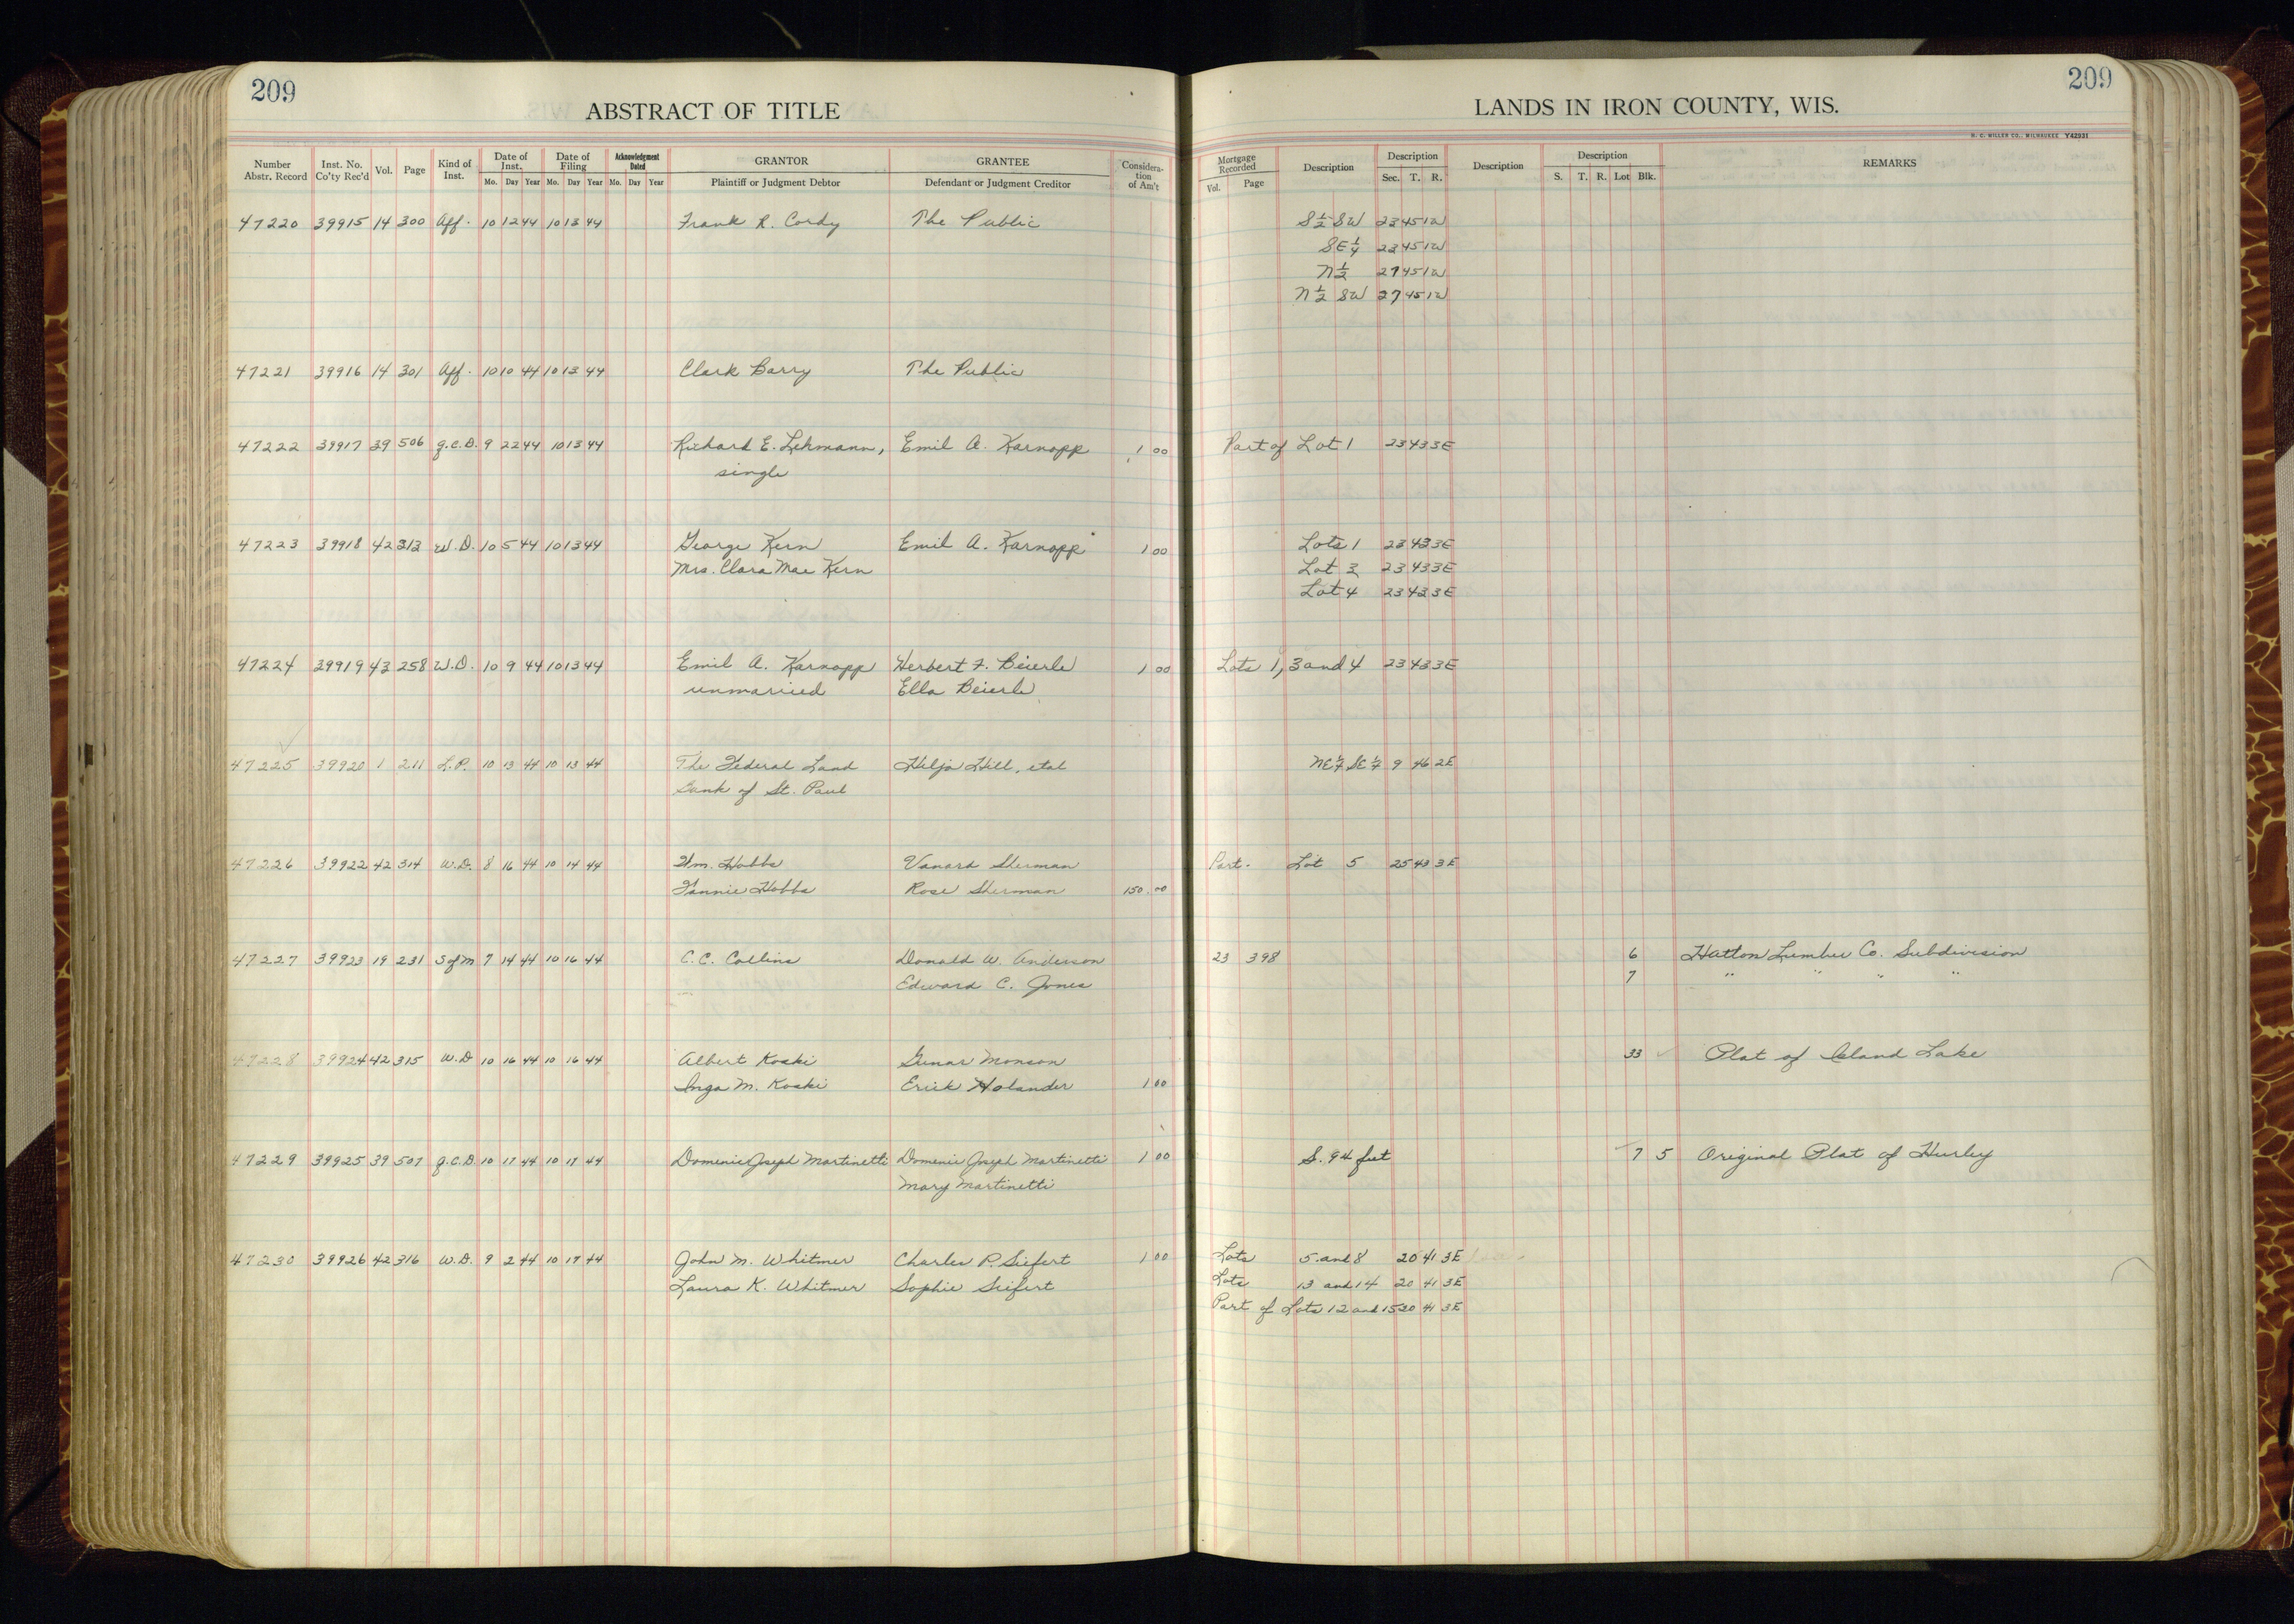 209
209
ABSTRACT OF TITLE
LANDS IN IRON COUNTY, WIS.
H. C. MILLER CO., MILWAUKEE Y42931
Number Abstr. Record Inst. No. Co'ty Rec'd Vol. Page Kind of Inst. Date of Inst. Date of Filing Acknowledgment Dated GRANTOR GRANTEE Consideration of Am't Mortgage Recorded Description Description Description Description REMARKS
Mo. Day Year Mo. Day Year Mo. Day Year Plaintiff or Judgment Debtor Defendant or Judgment Creditor Vol. Page Sec. T. R. S. T. R. Lot Blk.
47220 39915 14 300 Aff. 10 12 44 10 13 44 Frank R. Cordy The Public S 1/2 SW 23 45 1W
SE 1/4 23 45 1W
N 1/2 27 45 1W
N 1/2 SW 27 45 1W
47221 39916 14 301 Aff. 10 10 44 10 13 44 Clark Barry The Public
47222 39917 39 506 q.c.D. 9 22 44 10 13 44 Richard E. Lehmann, Emil A. Karnopp 1 00 Part of Lot 1 23 43 3E
single
47223 39918 42 313 W.D. 10 5 44 10 13 44 George Kern Emil A. Karnopp 1 00 Lots 1 23 43 3E
Mrs. Clara Mae Kern Lot 3 23 43 3E
Lot 4 23 43 3E
47224 39919 43 258 W.D. 10 9 44 10 13 44 Emil A. Karnopp Herbert F. Beierle 1 00 Lots 1, 3 and 4 23 43 3E
unmarried Ella Beierle
47225 39920 1 211 L.P. 10 13 44 10 13 44 The Federal Land Hilja Hill, etal NE 1/4 SE 1/4 9 46 2E
Bank of St. Paul
47226 39922 42 314 W.D. 8 16 44 10 14 44 Wm. Hobbs Vanard Sherman Part. Lot 5 25 43 3E
Fannie Hobbs Rose Sherman 150.00
47227 39923 19 231 S of M 7 14 44 10 16 44 C.C. Collins Donald W. Anderson 23 398 6 Hatton Lumber Co. Subdivision
Edward C. Jones 7 " " " "
47228 39924 42 315 W.D 10 16 44 10 16 44 Albert Koski Gunar Monson 33 Plat of Island Lake
Inga M. Koski Erick Holander 1 00
47229 39925 39 507 q.c.D. 10 17 44 10 17 44 Domenic Joseph Martinetti Domenic Joseph Martinetti 1 00 S. 94 feet 7 5 Original Plat of Hurley
Mary Martinetti
47230 39926 42 316 W.D. 9 2 44 10 17 44 John M. Whitmer Charles P. Siefert 1 00 Lots 5 and 8 20 41 3E
Laura K. Whitmer Sophie Seifert Lots 13 and 14 20 41 3E
Part of Lots 12 and 15 20 41 3E